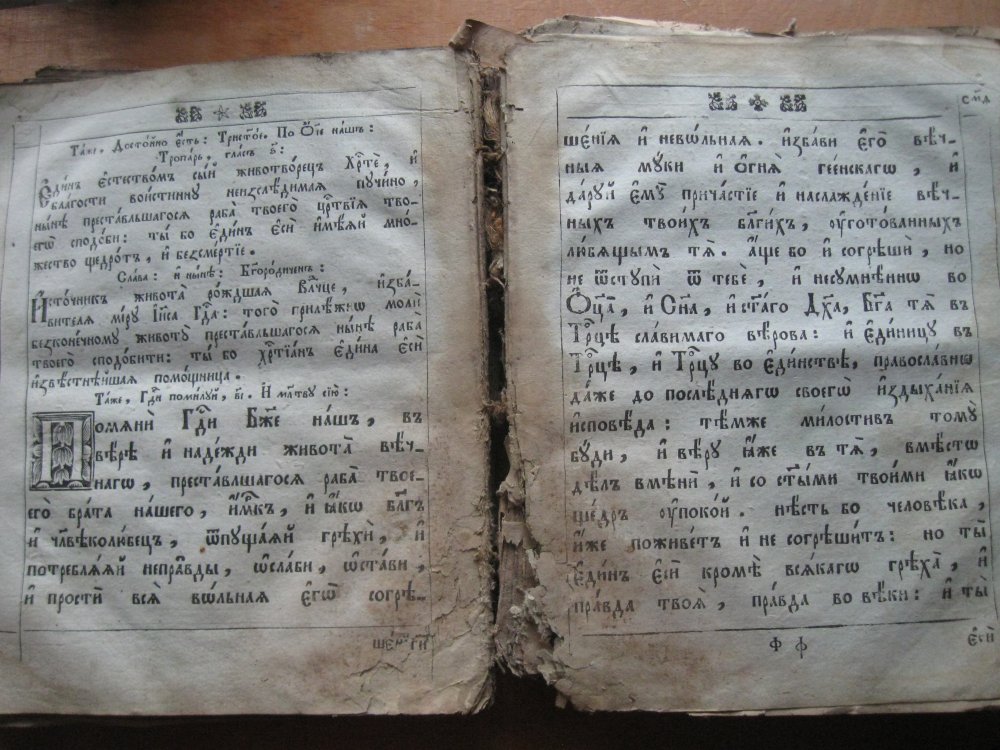 Та́же. Досто́йно є҆́сть: Трист҃о́е. По Ѻ҆́ч҃е на́шъ:
Тропа́рь, гла́съ в҃:
Є҆ди́нъ є҆стество́мъ сы́й животво́рецъ Хр҃те́, и҆
бла́гости вои́стинну неизслѣ́димая пучи́но,
ны́нѣ преста́вльшагося раба̀ твоего̀ црⷭ҇твїя тво-
егѡ̀ сподо́би: ты́ бо є҆ди́нъ є҆сѝ и҆мѣ́яй мно́-
жество щедро́тъ, и҆ безсме́ртїе.
Сла́ва: и҆ ны́нѣ: Бг҃оро́диченъ:
И҆сто́чникъ живота̀ ро́ждшая влⷣчце, и҆зба́-
вителя мі́ру І҆и҃са Гдⷭ҇а: того̀ прилѣ́жнѡ молѝ
безконе́чному животу̀ преста́вльшагося ны́нѣ раба̀
твоего̀ сподо́бити: ты́ бо хрⷭ҇тїа́нъ є҆ди́на є҆сѝ
и҆звѣ́стнѣйшая помо́щница.
Та́же, Гдⷭ҇и поми́луй, в҃і. И҆ мл҃тву сїю̀:
Помянѝ Гдⷭ҇и Бж҃е на́шъ, въ
вѣ́рѣ и҆ наде́жди живота̀ вѣ́ч-
нагѡ, преста́вльшагося раба̀ твое-
го̀ бра́та на́шего, и҆́м҃къ, и҆ ꙗ҆́кѡ бл҃гъ
и҆ чл҃вѣколю́бецъ, ѿпуща́яй грѣхѝ, и҆
потребля́яй непра́вды, ѡ҆сла́би, ѡ҆ста́ви,
и҆ простѝ вся̀ вѡ́льная є҆гѡ̀ согрѣ-
ше́нїя
ше́нїя и҆ невѡ́льная. и҆зба́ви є҆го̀ вѣ́ч-
ныя му́ки и҆ ѻ҆гня̀ гее́нскагѡ, и҆
да́руй є҆му̀ прича́стїе и҆ наслажде́нїе вѣ́ч-
ныхъ твои́хъ бл҃ги́хъ, ᲂу҆гото́ванныхъ
лю́бящымъ тя̀. а҆́ще бо и҆ согрѣшѝ, но
не ѿступѝ ѿ тебѐ, и҆ несумнѣ́ннѡ во
Ѻ҆ц҃а̀, и҆ Сн҃а, и҆ ст҃а́го Дх҃а, Бг҃а тя̀ въ
Трⷪ҇цѣ сла́вимаго вѣ́рова: и҆ є҆ди́ницу въ
Трⷪ҇цѣ, и҆ Трⷪ҇цу во є҆ди́нствѣ, правосла́внѡ
да́же до послѣ́днягѡ своегѡ̀ и҆здыха́нїя
и҆сповѣ́да: тѣ́мже ми́лостивъ тому̀
бу́ди, и҆ вѣ́ру ꙗ҆́же въ тя̀, вмѣ́стѡ
дѣ́лъ вмѣнѝ, и҆ со ст҃ы́ми твои́ми ꙗ҆́кѡ
ще́дръ ᲂу҆поко́й. нѣ́сть бо человѣ́ка,
и҆́же поживе́тъ и҆ не согрѣши́тъ: но ты̀
є҆ди́нъ є҆сѝ кромѣ̀ вся́кагѡ грѣха̀, и҆
пра́вда твоя̀, пра́вда во вѣ́ки: и҆ ты̀
Ф ф
є҆сѝ